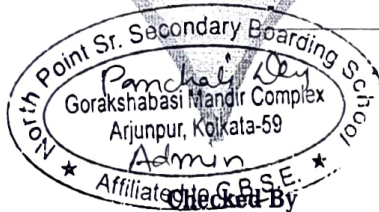 North Point Sr. Secondary Boarding School
Panchali Dey
Gorakshabasi Mandir Complex
Arjunpur, Kolkata-59
Admin
★ Affiliated to C.B.S.E. ★
Checked By